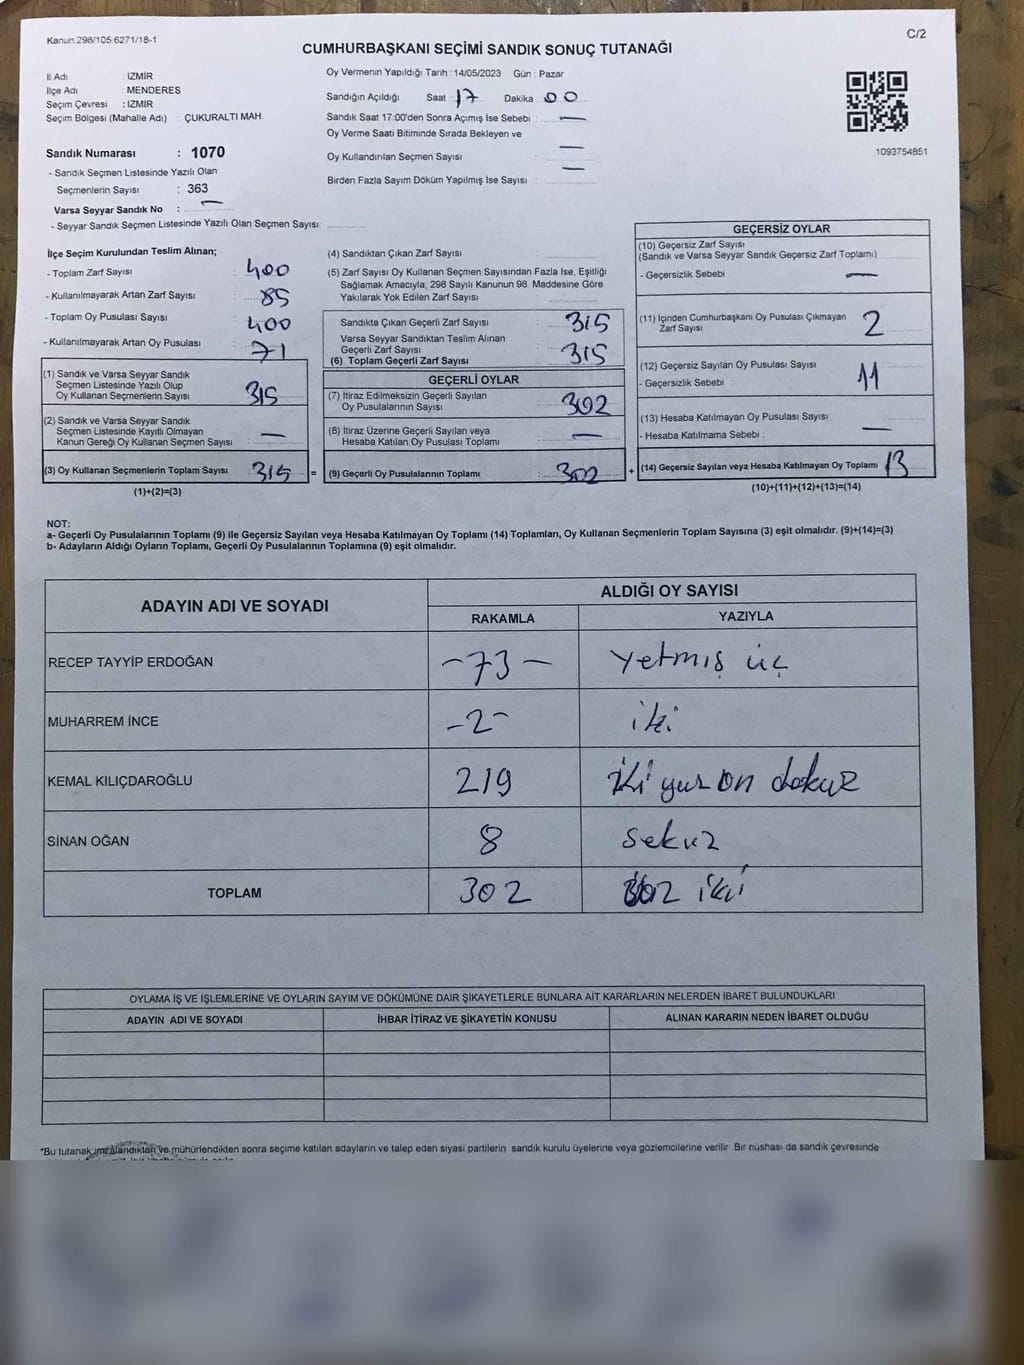 Kanun:298/105,6271/18-1
C/2
CUMHURBAŞKANI SEÇİMİ SANDIK SONUÇ TUTANAĞI
İl Adı : İZMİR
İlçe Adı : MENDERES
Seçim Çevresi : İZMİR
Seçim Bölgesi (Mahalle Adı) : ÇUKURALTI MAH.
Sandık Numarası : 1070
- Sandık Seçmen Listesinde Yazılı Olan
Seçmenlerin Sayısı : 363
Varsa Seyyar Sandık No : —
- Seyyar Sandık Seçmen Listesinde Yazılı Olan Seçmen Sayısı :
Oy Vermenin Yapıldığı Tarih :14/05/2023 Gün : Pazar
Sandığın Açıldığı Saat : 17 Dakika : 00
Sandık Saat 17:00'den Sonra Açımış İse Sebebi : —
Oy Verme Saati Bitiminde Sırada Bekleyen ve
Oy Kullandırılan Seçmen Sayısı : —
Birden Fazla Sayım Döküm Yapılmış İse Sayısı : —
1093754851
İlçe Seçim Kurulundan Teslim Alınan;
- Toplam Zarf Sayısı : 400
- Kullanılmayarak Artan Zarf Sayısı : 85
- Toplam Oy Pusulası Sayısı : 400
- Kullanılmayarak Artan Oy Pusulası : 71
(1) Sandık ve Varsa Seyyar Sandık
Seçmen Listesinde Yazılı Olup
Oy Kullanan Seçmenlerin Sayısı : 315
(2) Sandık ve Varsa Seyyar Sandık
Seçmen Listesinde Kayıtlı Olmayan
Kanun Gereği Oy Kullanan Seçmen Sayısı : —
(3) Oy Kullanan Seçmenlerin Toplam Sayısı : 315 =
(1)+(2)=(3)
(4) Sandıktan Çıkan Zarf Sayısı :
(5) Zarf Sayısı Oy Kullanan Seçmen Sayısından Fazla İse, Eşitliği
Sağlamak Amacıyla; 298 Sayılı Kanunun 98. Maddesine Göre
Yakılarak Yok Edilen Zarf Sayısı :
Sandıkta Çıkan Geçerli Zarf Sayısı : 315
Varsa Seyyar Sandıktan Teslim Alınan
Geçerli Zarf Sayısı :
(6) Toplam Geçerli Zarf Sayısı : 315
GEÇERLİ OYLAR
(7) İtiraz Edilmeksizin Geçerli Sayılan
Oy Pusulalarının Sayısı : 302
(8) İtiraz Üzerine Geçerli Sayılan veya
Hesaba Katılan Oy Pusulası Toplamı : —
(9) Geçerli Oy Pusulalarının Toplamı : 302 +
GEÇERSİZ OYLAR
(10) Geçersiz Zarf Sayısı
(Sandık ve Varsa Seyyar Sandık Geçersiz Zarf Toplamı) :
- Geçersizlik Sebebi : —
(11) İçinden Cumhurbaşkanı Oy Pusulası Çıkmayan
Zarf Sayısı : 2
(12) Geçersiz Sayılan Oy Pusulası Sayısı : 11
- Geçersizlik Sebebi :
(13) Hesaba Katılmayan Oy Pusulası Sayısı : —
- Hesaba Katılmama Sebebi :
(14) Geçersiz Sayılan veya Hesaba Katılmayan Oy Toplamı : 13
(10)+(11)+(12)+(13)=(14)
NOT:
a- Geçerli Oy Pusulalarının Toplamı (9) ile Geçersiz Sayılan veya Hesaba Katılmayan Oy Toplamı (14) Toplamları, Oy Kullanan Seçmenlerin Toplam Sayısına (3) eşit olmalıdır. (9)+(14)=(3)
b- Adayların Aldığı Oyların Toplamı, Geçerli Oy Pusulalarının Toplamına (9) eşit olmalıdır.
ADAYIN ADI VE SOYADI
ALDIĞI OY SAYISI
RAKAMLA YAZIYLA
RECEP TAYYİP ERDOĞAN -73- Yetmiş üç
MUHARREM İNCE -2- iki
KEMAL KILIÇDAROĞLU 219 iki yuz on dokuz
SİNAN OĞAN 8 Sekiz
TOPLAM 302 iki
OYLAMA İŞ VE İŞLEMLERİNE VE OYLARIN SAYIM VE DÖKÜMÜNE DAİR ŞİKAYETLERLE BUNLARA AİT KARARLARIN NELERDEN İBARET BULUNDUKLARI
ADAYIN ADI VE SOYADI İHBAR İTİRAZ VE ŞİKAYETİN KONUSU ALINAN KARARIN NEDEN İBARET OLDUĞU
*Bu tutanak imzalandıktan ve mühürlendikten sonra seçime katılan adayların ve talep eden siyasi partilerin sandık kurulu üyelerine veya gözlemcilerine verilir. Bir nüshası da sandık çevresinde